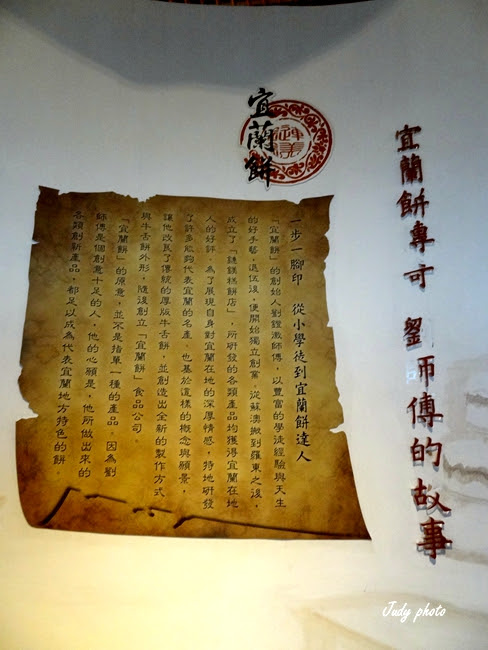 宜蘭餅專寸 劉師傅的故事
宜蘭餅
一步一腳印 從小學徒到宜蘭餅達人
「宜蘭餅」的創始人劉鐙徽師傅，以豐富的學徒經驗與天生
的好手藝，退伍後，便開始獨立創業。從蘇澳搬到羅東之後，
成立了「謎謎糕餅店」，所研發的各類產品均獲得宜蘭在地
人的好評。為了展現自身對宜蘭在地的深厚情感，特地研發
了許多能夠代表宜蘭的名產，也基於這樣的概念與願景，
讓他改良了傳統的厚版牛舌餅，並創造出全新的製作方式
與牛舌餅外形，隨後創立「宜蘭餅」食品公司。
「宜蘭餅」的原意，並不是指單一種的產品，因為劉
師傅是個創意十足的人，他的心願是，他所做出來的
各類創新產品，都足以成為代表宜蘭地方特色的餅。
Judy photo